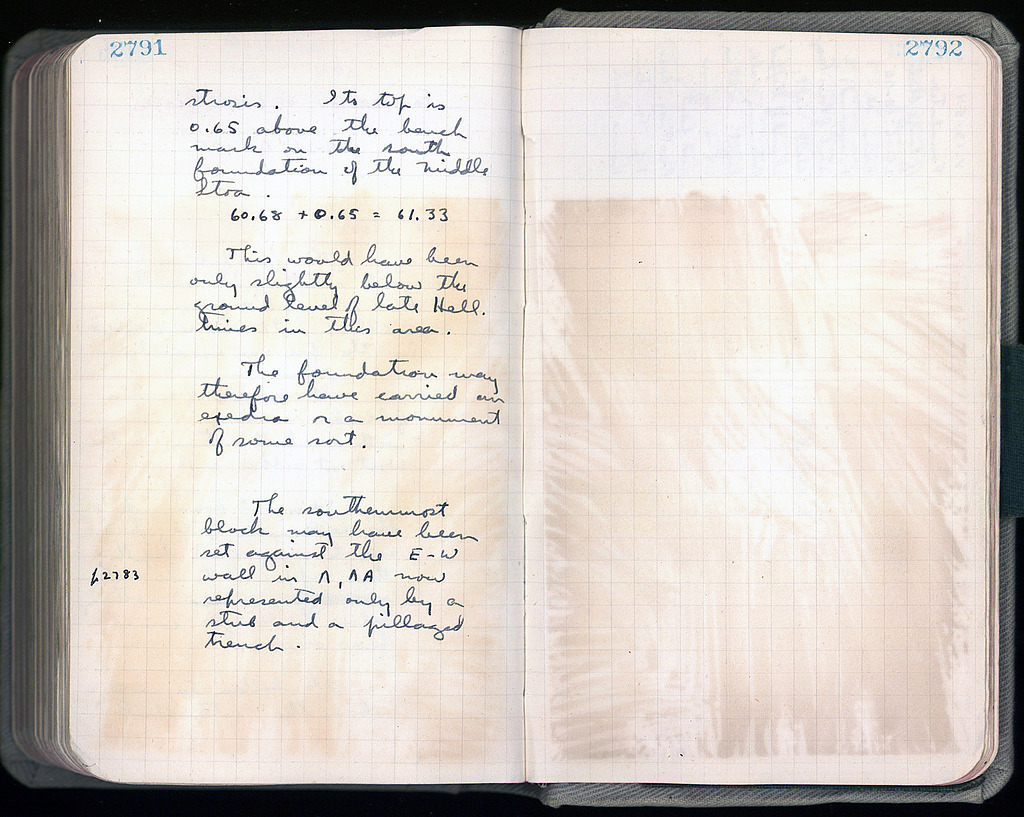 2791
strosis. Its top is
0.65 above the bench
mark on the south
foundation of the Middle
Stoa.
60.68 + 0.65 = 61.33
This would have been
only slightly below the
ground level of late Hell.
times in this area.
The foundation may
therefore have carried an
exedra or a monument
of some sort.
The southernmost
block may have been
set against the E-W
p. 2783
wall in Λ, ΛΑ now
represented only by a
stub and a pillaged
trench.
2792